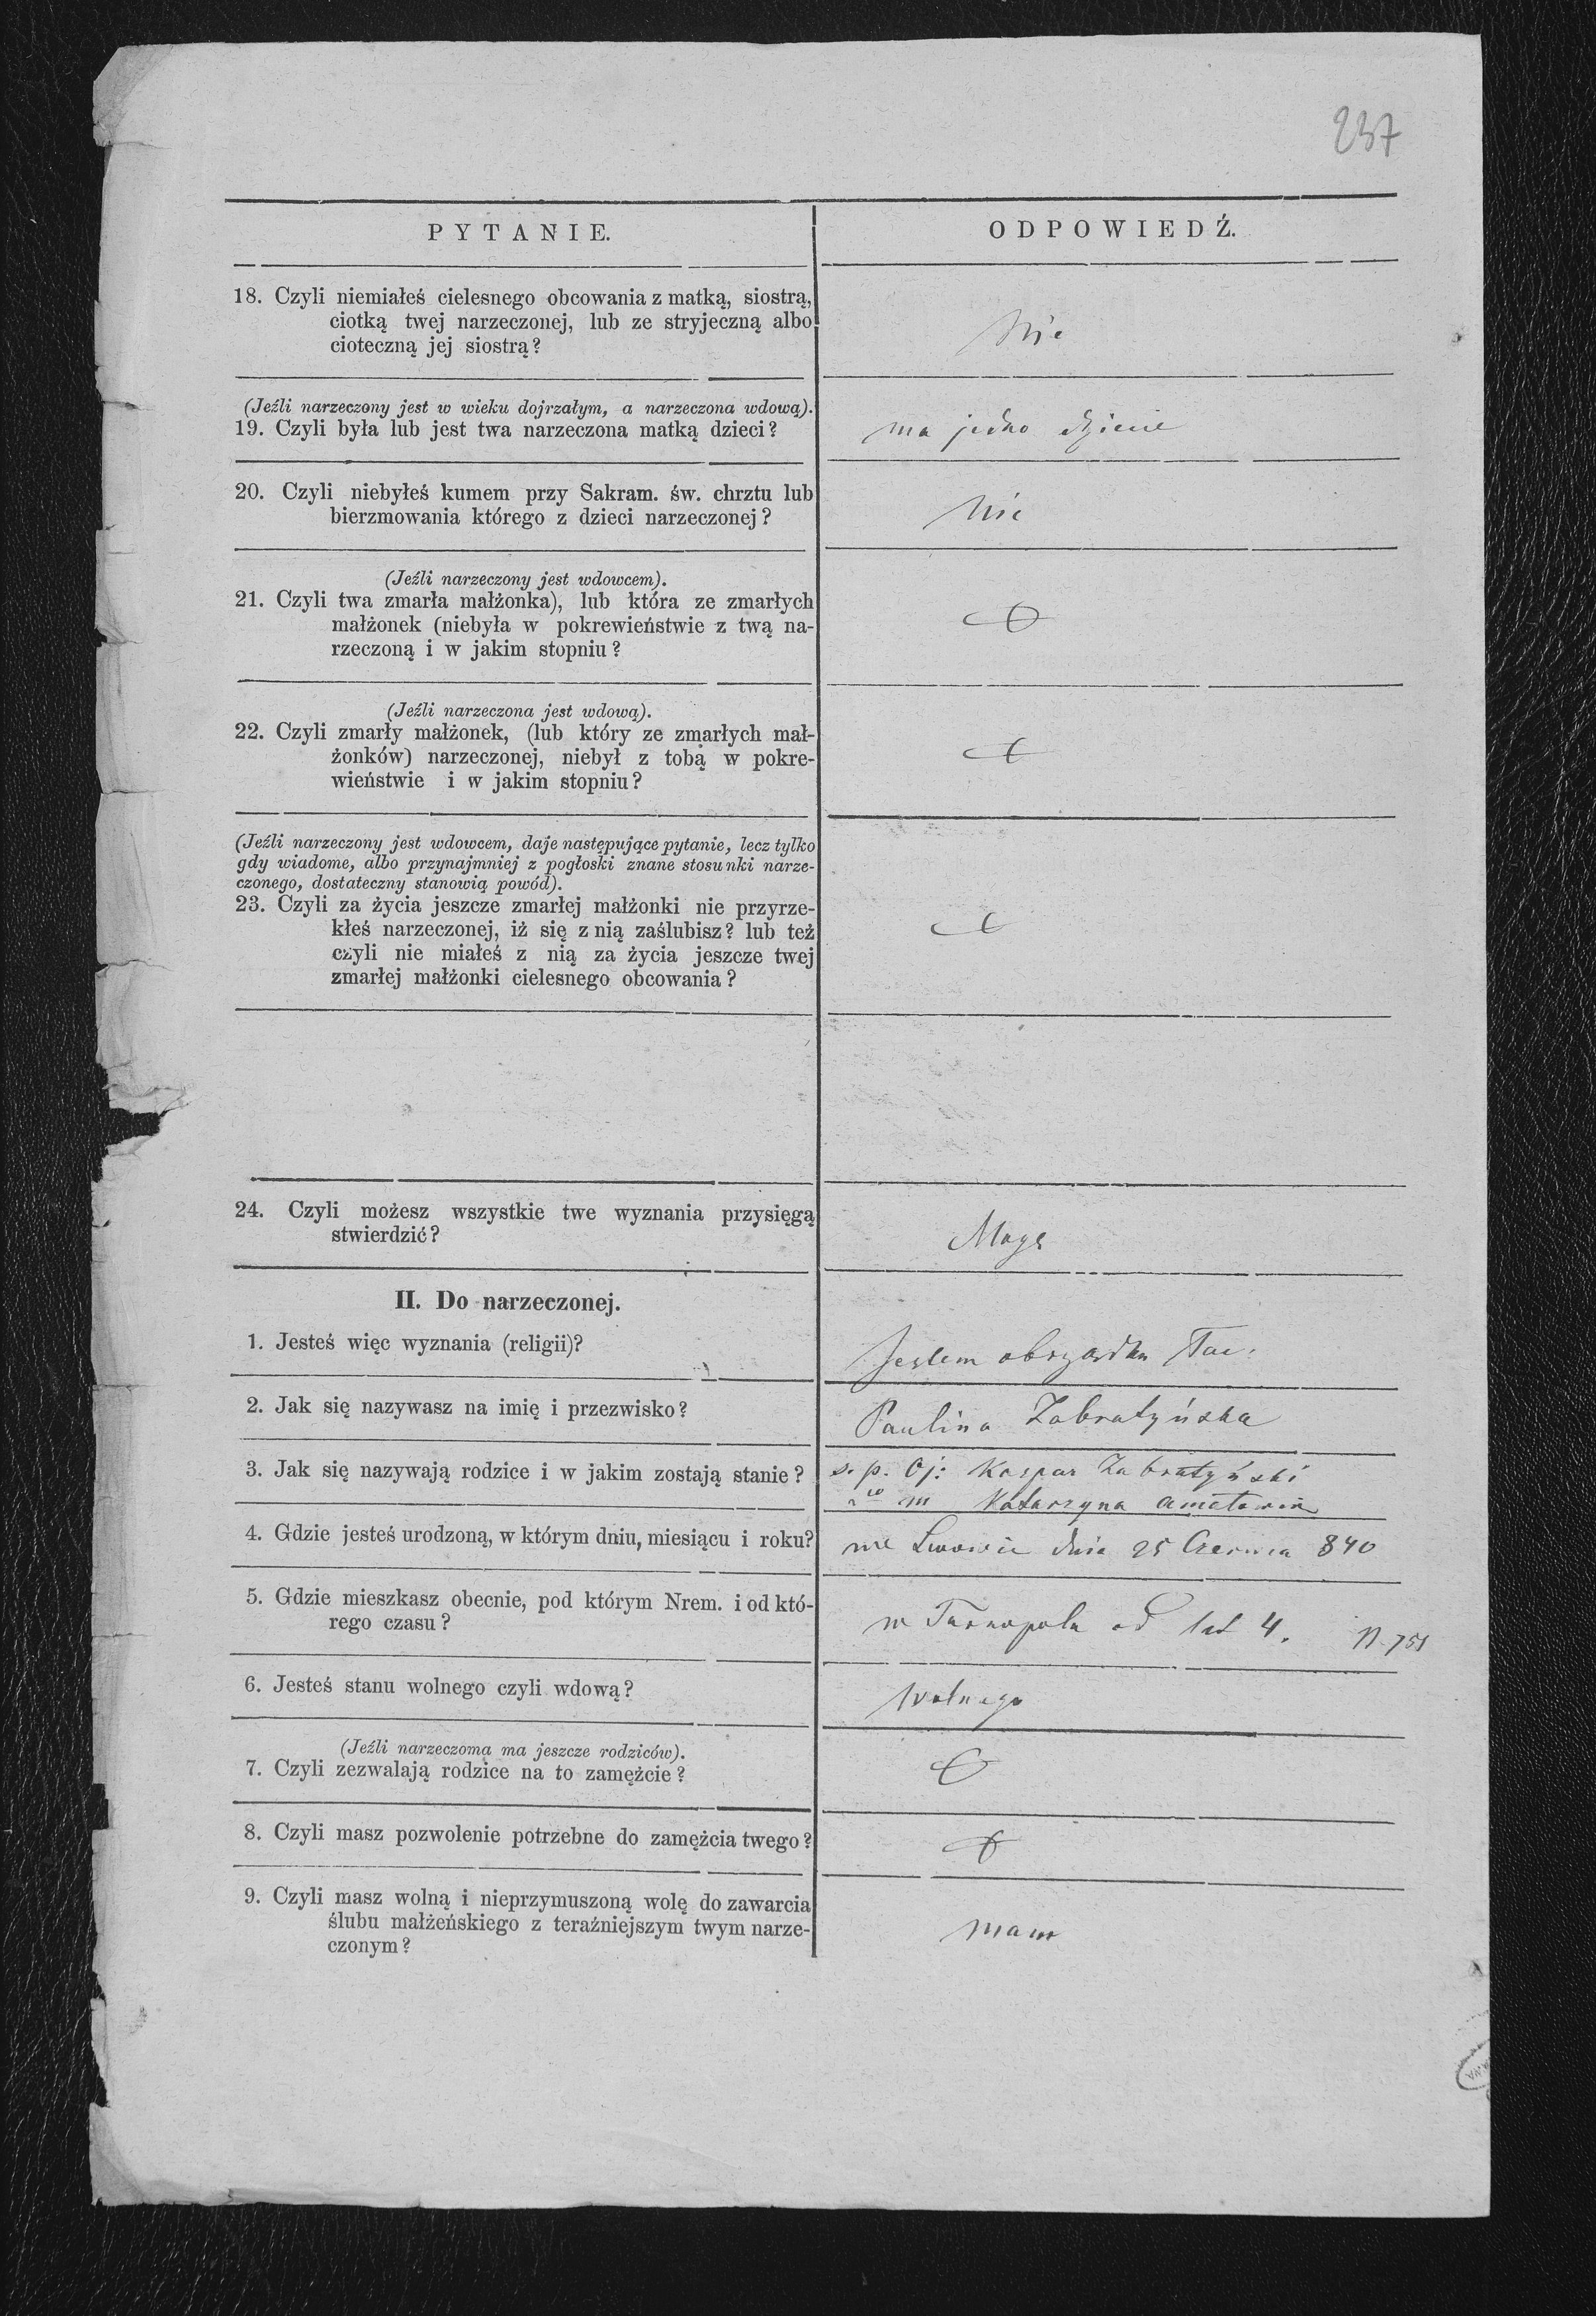 237
PYTANIE.
ODPOWIEDŹ.
18. Czyli niemiałeś cielesnego obcowania z matką, siostrą,
ciotką twej narzeczonej, lub ze stryjeczną albo
cioteczną jej siostrą?
Nie
(Jeźli narzeczony jest w wieku dojrzałym, a narzeczona wdową).
19. Czyli była lub jest twa narzeczona matką dzieci?
ma jedno dziecie
20. Czyli niebyłeś kumem przy Sakram. św. chrztu lub
bierzmowania którego z dzieci narzeczonej?
Nie
(Jeźli narzeczony jest wdowcem).
21. Czyli twa zmarła małżonka), lub która ze zmarłych
małżonek (niebyła w pokrewieństwie z twą na-
rzeczoną i w jakim stopniu?
(Jeźli narzeczona jest wdową).
22. Czyli zmarły małżonek, (lub który ze zmarłych mał-
żonków) narzeczonej, niebył z tobą w pokre-
wieństwie i w jakim stopniu?
(Jeźli narzeczony jest wdowcem, daje następujące pytanie, lecz tylko
gdy wiadome, albo przynajmniej z pogłoski znane stosunki narze-
czonego, dostateczny stanowią powód).
23. Czyli za życia jeszcze zmarłej małżonki nie przyrze-
kłeś narzeczonej, iż się z nią zaślubisz? lub też
czyli nie miałeś z nią za życia jeszcze twej
zmarłej małżonki cielesnego obcowania?
24. Czyli możesz wszystkie twe wyznania przysięgą
stwierdzić?
Mogę
II. Do narzeczonej.
1. Jesteś więc wyznania (religii)?
Jestem obrządku łac.
2. Jak się nazywasz na imię i przezwisko?
Paulina Zabratyńska
3. Jak się nazywają rodzice i w jakim zostają stanie?
s. p. Oj: Kaspar Zabratyński
m Katarzyna
4. Gdzie jesteś urodzoną, w którym dniu, miesiącu i roku?
we Lwowie dnia 25 Czerwca 840
5. Gdzie mieszkasz obecnie, pod którym Nrem. i od któ-
rego czasu?
w Tarnopolu od lat 4. N 751
6. Jesteś stanu wolnego czyli wdową?
Wolnego
(Jeźli narzeczoma ma jeszcze rodziców).
7. Czyli zezwalają rodzice na to zamężcie?
8. Czyli masz pozwolenie potrzebne do zamężcia twego?
9. Czyli masz wolną i nieprzymuszoną wolę do zawarcia
ślubu małżeńskiego z teraźniejszym twym narze-
czonym?
mam